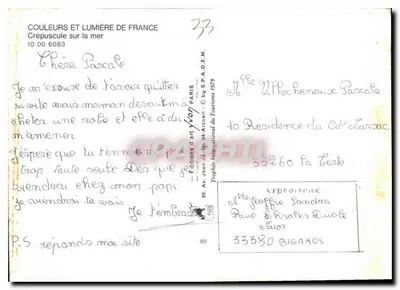 COULEURS ET LUMIÈRE DE FRANCE
Crépuscule sur la mer
10 00 6083
33
Chère Pascale
Je m'excuse de t'avoir quitter
si vite mais maman devait m'a
cheter une robe et elle a du
m'amener
J'espère que tu t'ennuies p
trop toute seule Des que je
viendrai chez mon papi
je viendrai te voir
Je t'embrasse
P.S réponds moi vite
Editions d'art Yvon PARIS
30, Av. Jean-Jaurès - Arcueil - © by S.P.A.D.E.M.
Trophée International du Tourisme 1979
80
Mlle Villechenoux Pascale
10 Résidence du Cdt
33260 La Teste
EXPEDITRICE
Mlle Joffre Sandra
33380 BIGANOS